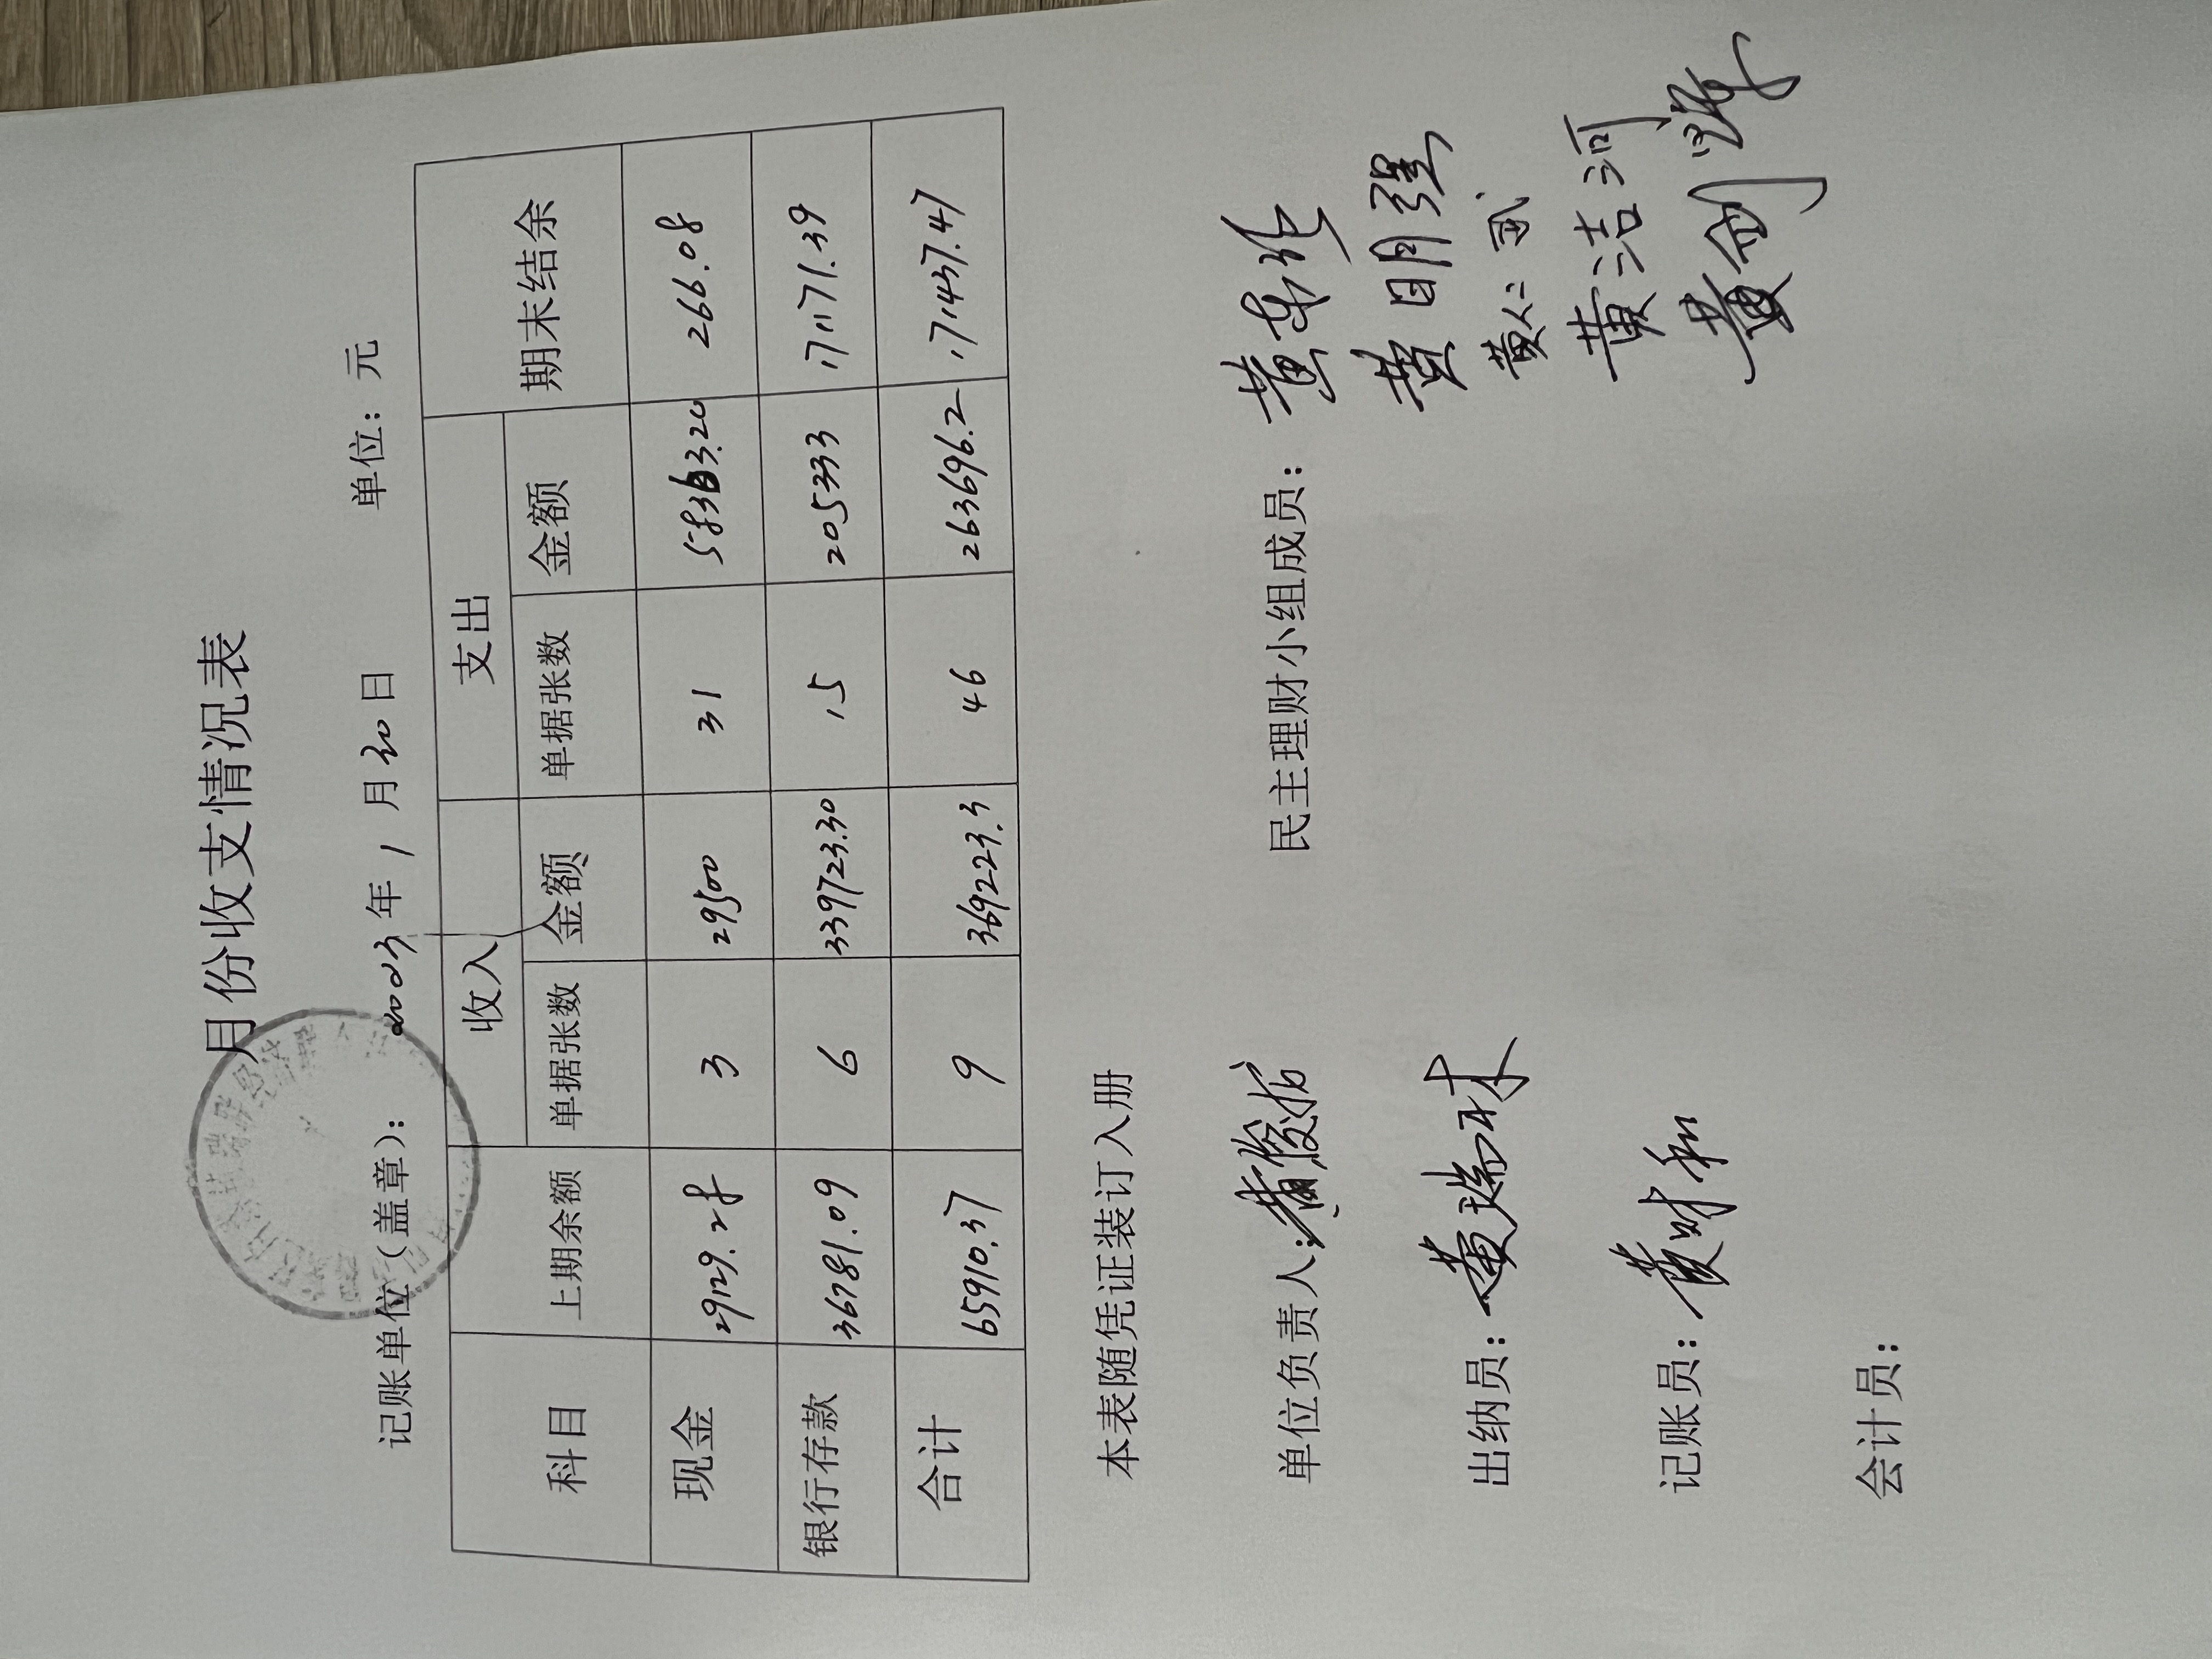 月份收支情况表
记账单位(盖章): 年 1 月 30 日 单位: 元
科目 上期余额 收入 支出 期末结余
单据张数 金额 单据张数 金额
现金 29129.28 3 29500 31 58363.20 266.08
银行存款 36781.09 6 339723.30 15 205333 171171.39
合计 65910.37 9 369223.3 46 263696.2 171437.47
本表随凭证装订入册
单位负责人: 民主理财小组成员:
黄明强
出纳员: 黄瑞林
黄仁武
记账员: 黄洁河
黄剑辉
会计员: